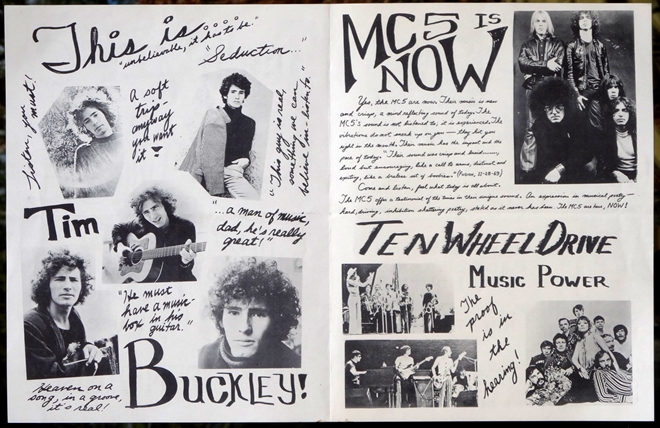 This is....
"unbelievable, it has to be"
"Seduction..."
Listen, you must!
A soft
trip-
anyway
you want
it
"This guy is real,
something we can
believe in-listen to."
Tim
"...a man of music,
dad, he's really
great!"
"He must
have a music-
box in his
guitar."
Heaven on a
song, in a groove,
it's real!
BUCKLEY!
MC5 IS
NOW
Yes, the MC5 are now. Their music is new
and crisp, a mind reflecting sound of today. The
MC5's sound is not listened to, it is experienced. The
vibrations do not sneak up on you — they hit you
right in the mouth. Their music has the impact and the
pace of today. "Their sound was crisp and
loud but encouraging, like a call to arms, distinct and
exciting, like a
Come and listen, feel what today is all about.
The MC5 offer a testament of the times in their unique sound. An expression in musical poetry—
hard, driving, inhibition shattering poetry, stated as it never has been. The MC5 are here, NOW!
TEN WHEEL DRIVE
MUSIC POWER
The
proof
is in
the
hearing!